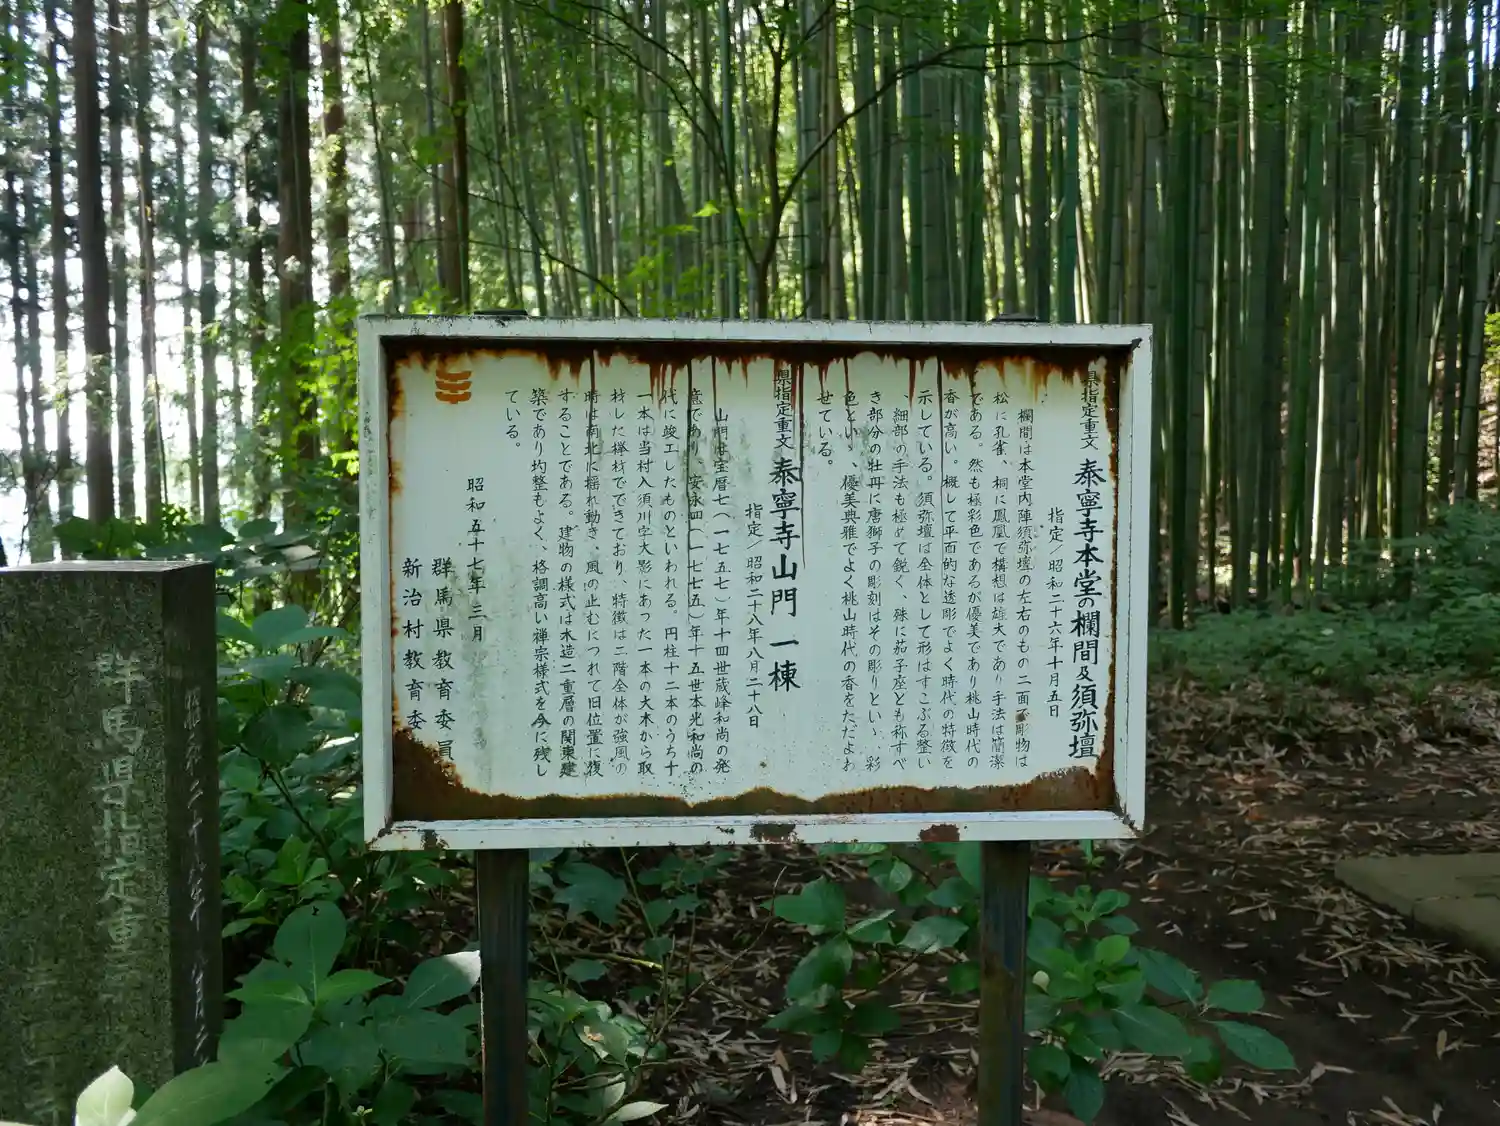 県指定重文 泰寧寺本堂の欄間及須弥壇
指定/昭和二十六年十月五日
欄間は本堂内陣須弥壇の左右のもの二面で彫物は
松に孔雀、桐に鳳凰で構想は雄大であり手法は簡潔
である。然も極彩色であるが優美であり桃山時代の
香が高い。概して平面的な透彫でよく時代の特徴を
示している。須弥壇は全体として形はすこぶる整い
、細部の手法も極めて鋭く、殊に茄子座とも称すべ
き部分の牡丹に唐獅子の彫刻はその彫りといゝ、彩
色といゝ、優美典雅でよく桃山時代の香をたゞよわ
せている。
県指定重文 泰寧寺山門 一棟
指定/昭和二十八年八月二十八日
山門は宝暦七(一七五七)年十四世蔵峰和尚の発
意であり。安永四(一七七五)年十五世本光和尚の
代に竣工したものといわれる。円柱十二本のうち十
一本は当村入須川字大影にあった一本の大木から取
材した欅材でできており、特徴は二階全体が強風の
時は南北に揺れ動き、風の止むにつれて旧位置に復
することである。建物の様式は木造二重層の関東建
築であり均整もよく、格調高い禅宗様式を今に残し
ている。
昭和五十七年三月
群馬県教育委員
新治村教育委
群馬県指定重